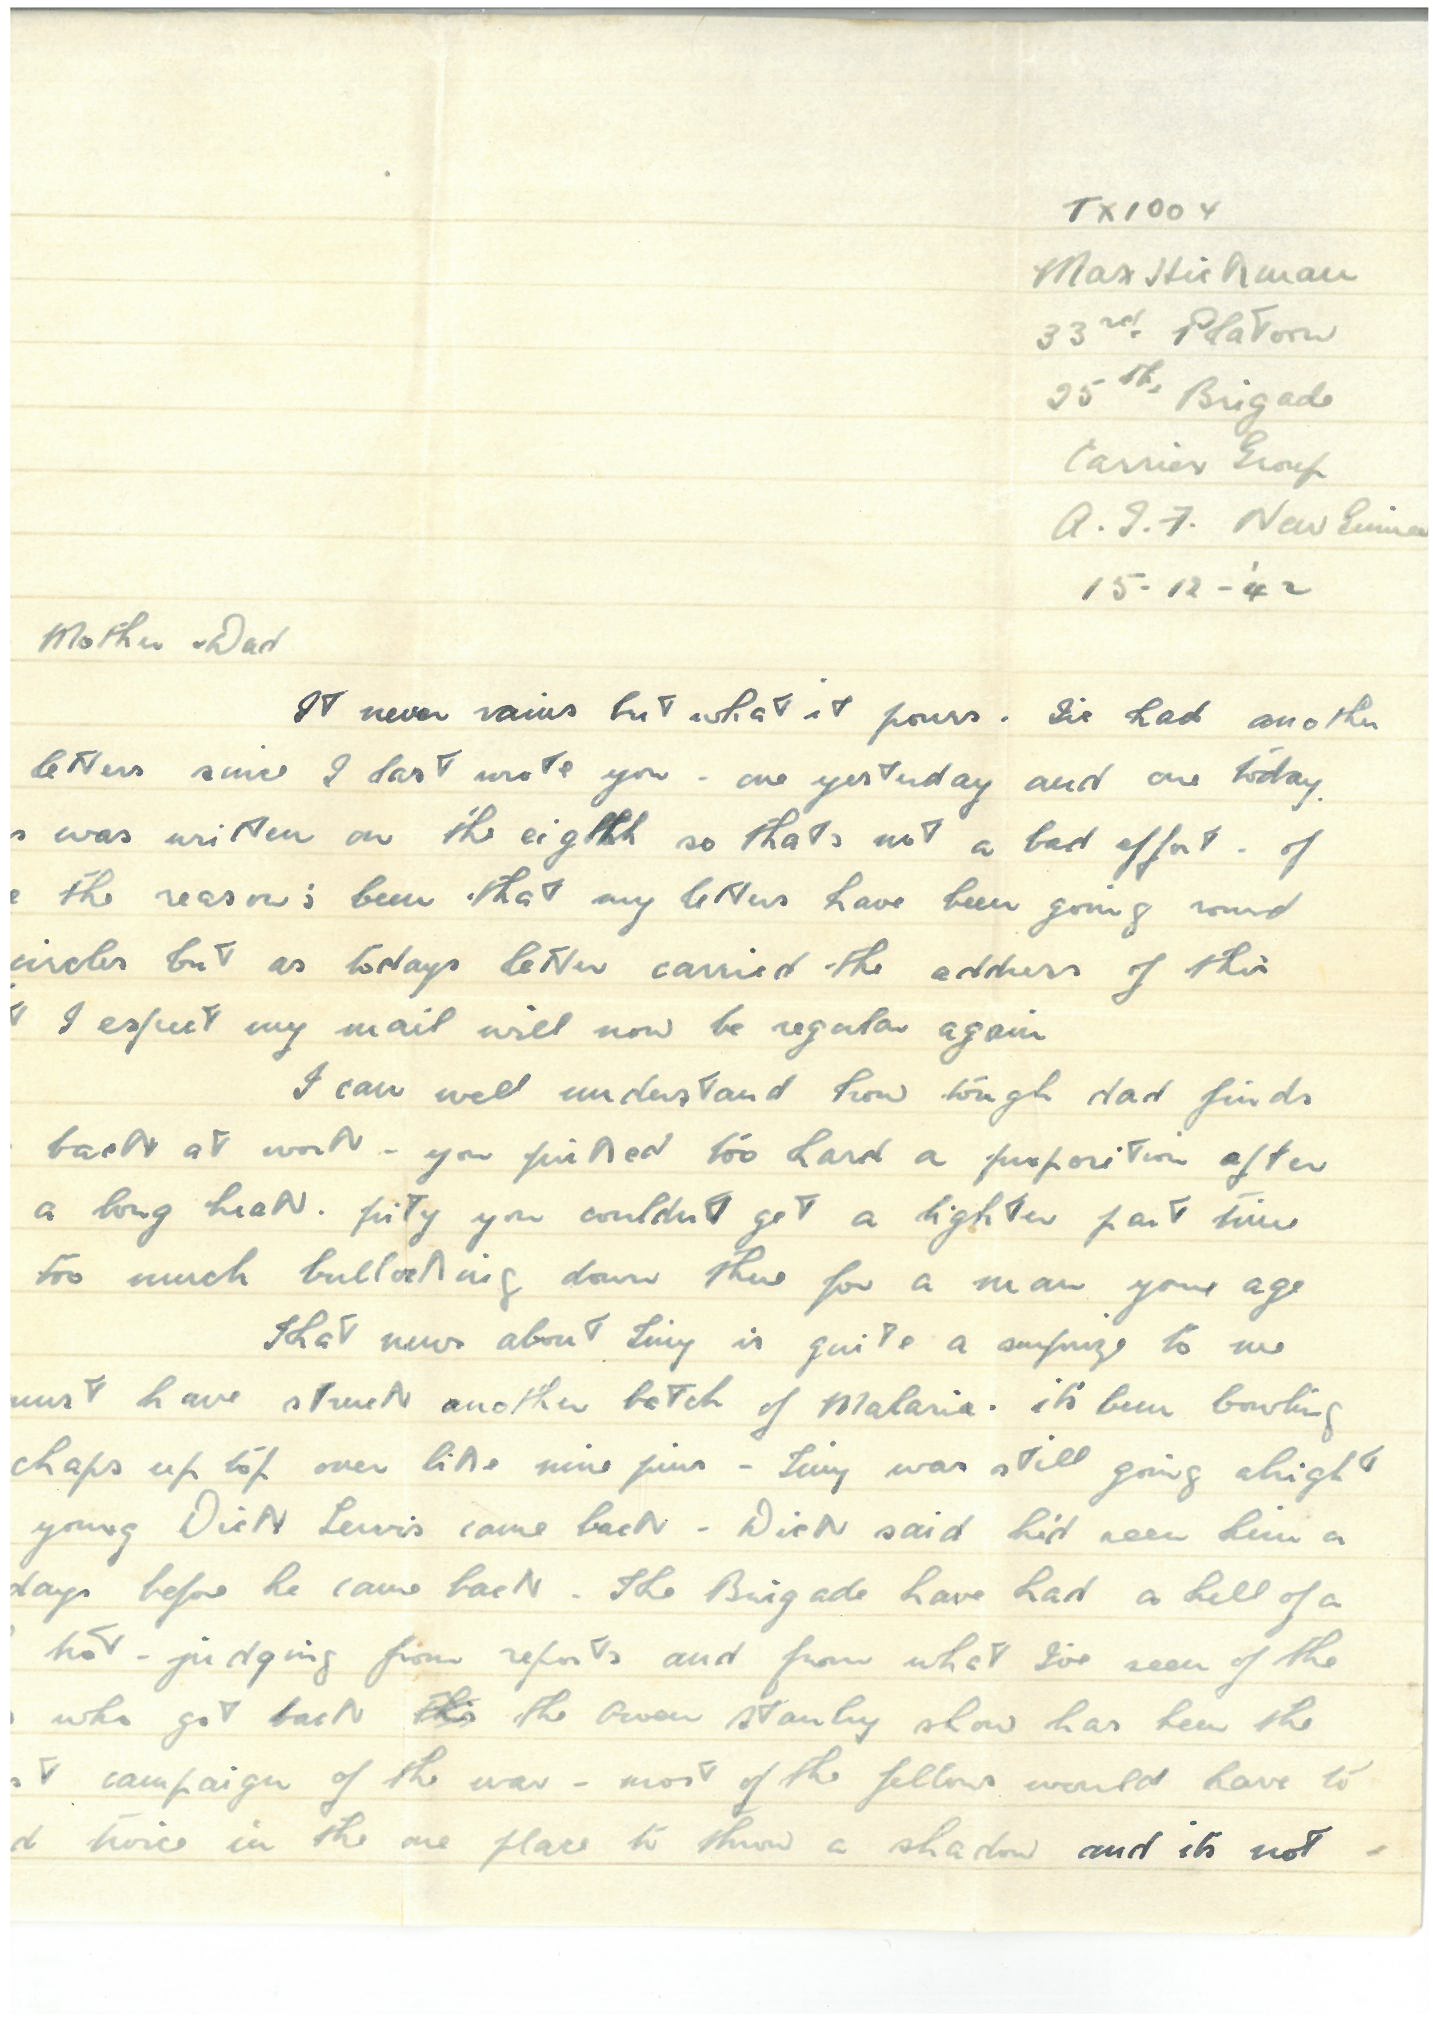 TX1004
Max Hickman
33rd. Platoon
25th. Brigade
Carrier Group
A.I.F. New Guinea
15-12-'42
Mother & Dad
It never rains but what it pours. I've had another
letters since I last wrote you - one yesterday and one today.
s was written on the eighth so thats not a bad effort. of
e the reason's been that my letters have been going round
circles but as todays letter carried the address of this
t I expect my mail will now be regular again
I can well understand how tough dad finds
back at work - you picked too hard a proposition after
a long break. pity you couldn't get a lighter part time
too much bullocking down there for a man your age
That news about Tiny is quite a surprize to me
must have struck another batch of Malaria. its been bowling
chaps up top over like nine pins - Tiny was still going alright
young Dick Lewis came back - Dick said he'd seen him a
days before he came back. The Brigade have had a hell of a
hot - judging from reports and from what I've seen of the
who got back the Owen Stanley show has been the
st campaign of the war - most of the fellows would have to
d twice in the one place to throw a shadow and its not -